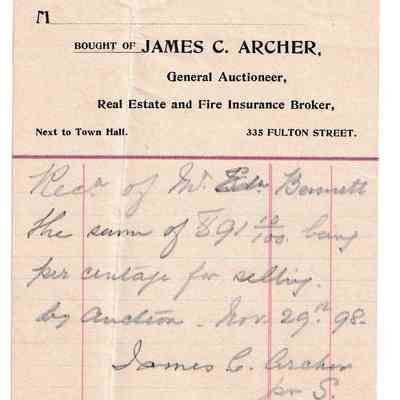 M
BOUGHT OF JAMES C. ARCHER,
General Auctioneer,
Real Estate and Fire Insurance Broker,
Next to Town Hall. 335 FULTON STREET.
Rec'd of Mr. Edw. Bennett
the sum of $91 10/100 being
per centage for selling
by Auction. Nov. 29th 98-
James C. Archer
pr S.